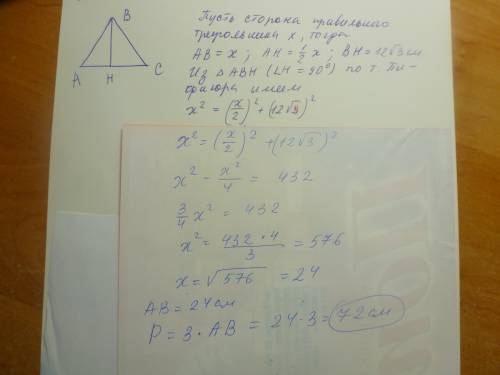 B
A
H
C
Пусть сторона правильного
треугольника x, тогда
AB = x ; AH = ½ x ; BH = 12√3 см
Из △ABH (∠H = 90°) по т. Пи-
фагора имеем
x² = (x/2)² + (12√3)²
x² = (x/2)² + (12√3)²
x² - x²/4 = 432
3/4 x² = 432
x² = 432 * 4 / 3 = 576
x = √576 = 24
AB = 24 см
P = 3 · AB = 24 · 3 = 72 см